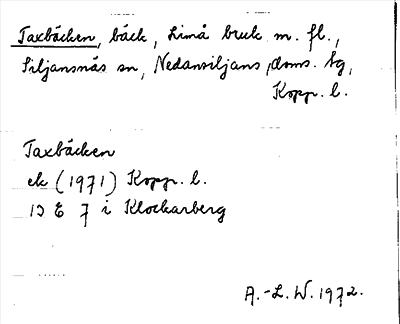 Taxbäcken, bäck, Limå bruk m. fl.,
Siljansnäs sn, Nedansiljans doms. tg,
Kopp. l.
Taxbäcken
ek (1971) Kopp. l.
13 E 7 i Klockarberg
A.-L. W. 1972.